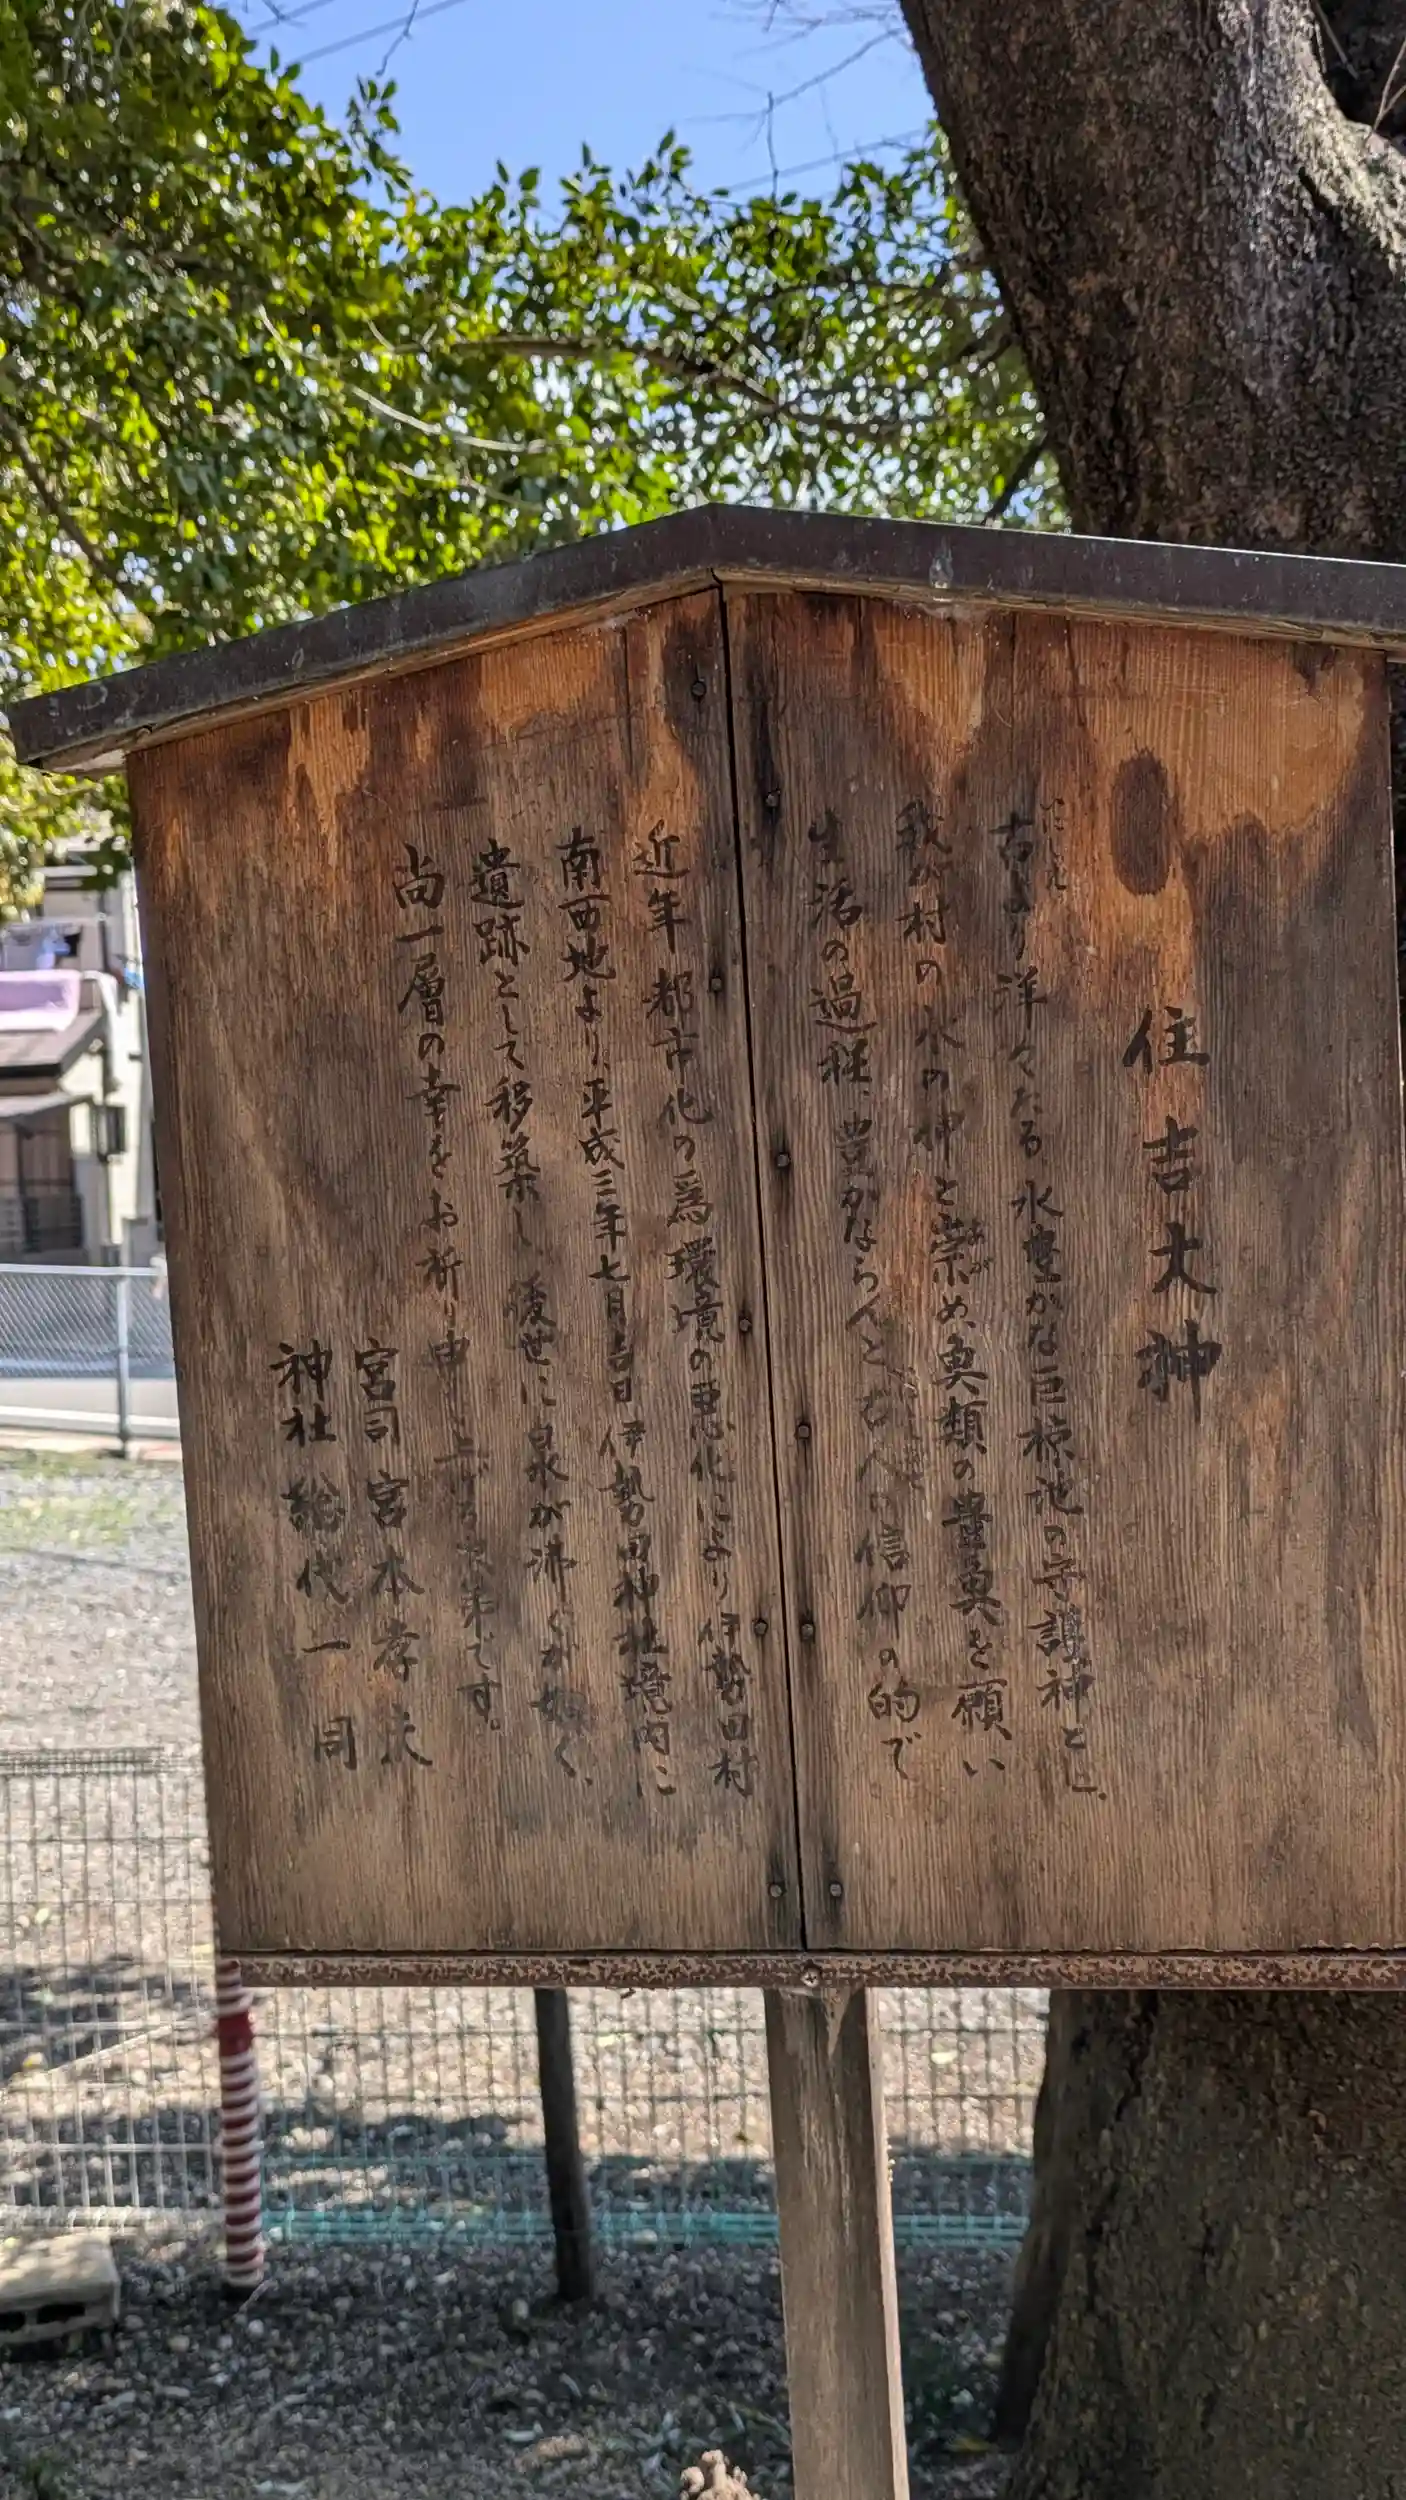 住吉大神
古より洋々たる水豊かな巨椋池の守護神とし、
我が村の水の神と崇め、魚類の豊魚を願い
生活の過程、豊かならんと古人の信仰の的で
近年都市化の為環境の悪化により伊勢田村
南西地より、平成三年七月吉日伊勢田神社境内に
遺跡として移築し、後世に泉が沸くが如く、
尚一層の幸をお祈り申し上げる次第です。
宮司 宮本孝夫
神社総代一同